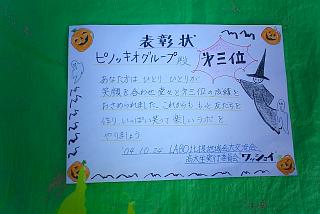 表彰状
ピノッキオグループ殿
第三位
あなた方は ひとり ひとりが
笑顔を合わせ 堂々と第三位の成績を
おさめられました。これからも もっと友だちを
作り いっぱい笑って楽しいラボを
やりましょう
'04.10.24 LABO
高大生実行委員会 ワッショイ